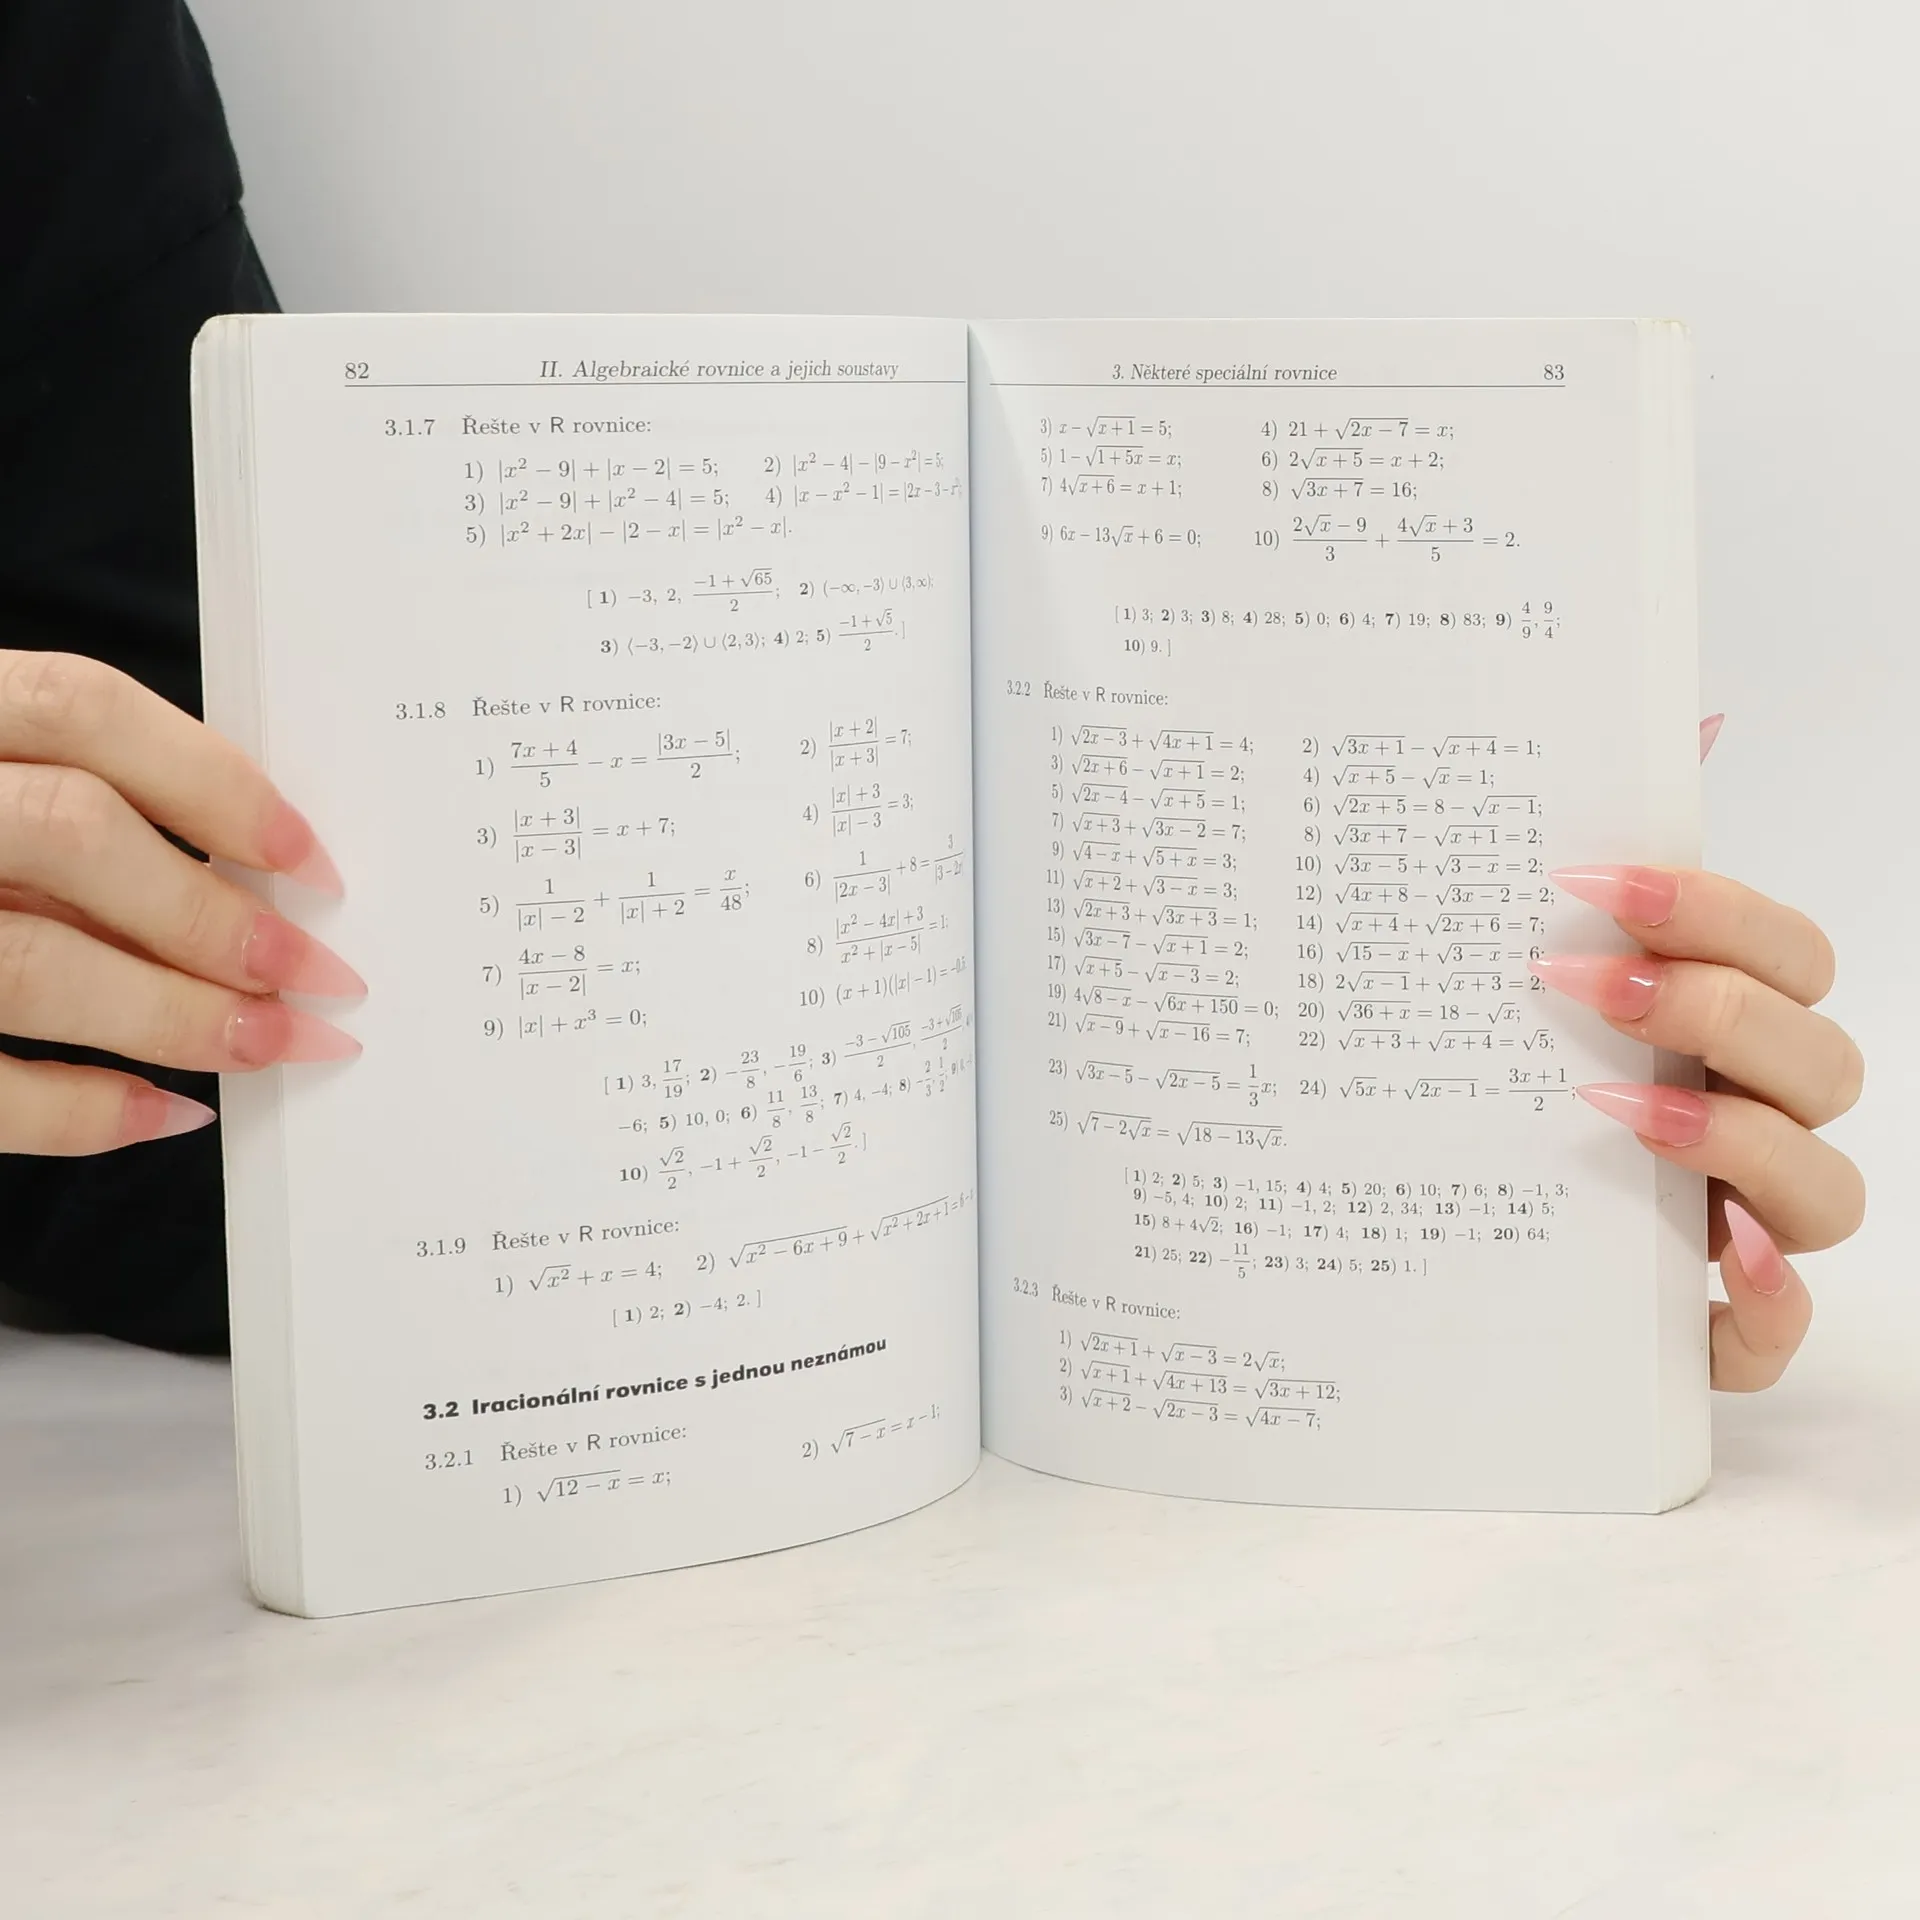 82 II. Algebraické rovnice a jejich soustavy
3.1.7 Řešte v R rovnice:
1) |x² − 9| + |x − 2| = 5; 2) |x² − 4| − |9 − x²| = 5;
3) |x² − 9| + |x² − 4| = 5; 4) |x − x² − 1| = |2x − 3 − x²|;
5) |x² + 2x| − |2 − x| = |x² − x|.
[ 1) −3, 2, (−1 + √65)/2; 2) (−∞, −3⟩ ∪ ⟨3, ∞);
3) ⟨−3, −2⟩ ∪ ⟨2, 3⟩; 4) 2; 5) (−1 + √5)/2. ]
3.1.8 Řešte v R rovnice:
1) (7x + 4)/5 − x = |3x − 5|/2; 2) |x + 2|/|x + 3| = 7;
3) |x + 3|/|x − 3| = x + 7; 4) (|x| + 3)/(|x| − 3) = 3;
5) 1/(|x| − 2) + 1/(|x| + 2) = x/48; 6) 1/|2x − 3| + 8 = 3/|3 − 2x|
7) (4x − 8)/|x − 2| = x; 8) (|x² − 4x| + 3)/(x² + |x − 5|) = 1;
9) |x| + x³ = 0; 10) (x + 1)(|x| − 1) = −0,5
[ 1) 3, 17/19; 2) −23/8, −19/6; 3) (−3 − √105)/2, (−3 + √105)/2,
−6; 5) 10, 0; 6) 11/8, 13/8; 7) 4, −4; 8) −2/3, 1/2; 9)
10) √2/2, −1 + √2/2, −1 − √2/2. ]
3.1.9 Řešte v R rovnice:
1) √(x²) + x = 4; 2) √(x² − 6x + 9) + √(x² + 2x + 1) = 6
[ 1) 2; 2) −4; 2. ]
3.2 Iracionální rovnice s jednou neznámou
3.2.1 Řešte v R rovnice:
1) √(12 − x) = x; 2) √(7 − x) = x − 1;
3. Některé speciální rovnice 83
3) x − √(x + 1) = 5; 4) 21 + √(2x − 7) = x;
5) 1 − √(1 + 5x) = x; 6) 2√(x + 5) = x + 2;
7) 4√(x + 6) = x + 1; 8) √(3x + 7) = 16;
9) 6x − 13√x + 6 = 0; 10) (2√x − 9)/3 + (4√x + 3)/5 = 2.
[ 1) 3; 2) 3; 3) 8; 4) 28; 5) 0; 6) 4; 7) 19; 8) 83; 9) 4/9, 9/4;
10) 9. ]
3.2.2 Řešte v R rovnice:
1) √(2x − 3) + √(4x + 1) = 4; 2) √(3x + 1) − √(x + 4) = 1;
3) √(2x + 6) − √(x + 1) = 2; 4) √(x + 5) − √x = 1;
5) √(2x − 4) − √(x + 5) = 1; 6) √(2x + 5) = 8 − √(x − 1);
7) √(x + 3) + √(3x − 2) = 7; 8) √(3x + 7) − √(x + 1) = 2;
9) √(4 − x) + √(5 + x) = 3; 10) √(3x − 5) + √(3 − x) = 2;
11) √(x + 2) + √(3 − x) = 3; 12) √(4x + 8) − √(3x − 2) = 2;
13) √(2x + 3) + √(3x + 3) = 1; 14) √(x + 4) + √(2x + 6) = 7;
15) √(3x − 7) − √(x + 1) = 2; 16) √(15 − x) + √(3 − x) = 6;
17) √(x + 5) − √(x − 3) = 2; 18) 2√(x − 1) + √(x + 3) = 2;
19) 4√(8 − x) − √(6x + 150) = 0; 20) √(36 + x) = 18 − √x;
21) √(x − 9) + √(x − 16) = 7; 22) √(x + 3) + √(x + 4) = √5;
23) √(3x − 5) − √(2x − 5) = 1/3 x; 24) √(5x) + √(2x − 1) = (3x + 1)/2;
25) √(7 − 2√x) = √(18 − 13√x).
[ 1) 2; 2) 5; 3) −1, 15; 4) 4; 5) 20; 6) 10; 7) 6; 8) −1, 3;
9) −5, 4; 10) 2; 11) −1, 2; 12) 2, 34; 13) −1; 14) 5;
15) 8 + 4√2; 16) −1; 17) 4; 18) 1; 19) −1; 20) 64;
21) 25; 22) −11/5; 23) 3; 24) 5; 25) 1. ]
3.2.3 Řešte v R rovnice:
1) √(2x + 1) + √(x − 3) = 2√x;
2) √(x + 1) + √(4x + 13) = √(3x + 12);
3) √(x + 2) − √(2x − 3) = √(4x − 7);